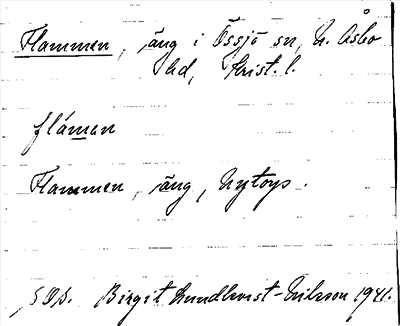 Flammen, äng i Össjö sn, N. Åsbo
hd, Krist. l.
flámen
Flammen, äng, Nytorp.
Birgit Lundkvist-Nilsson 1941.